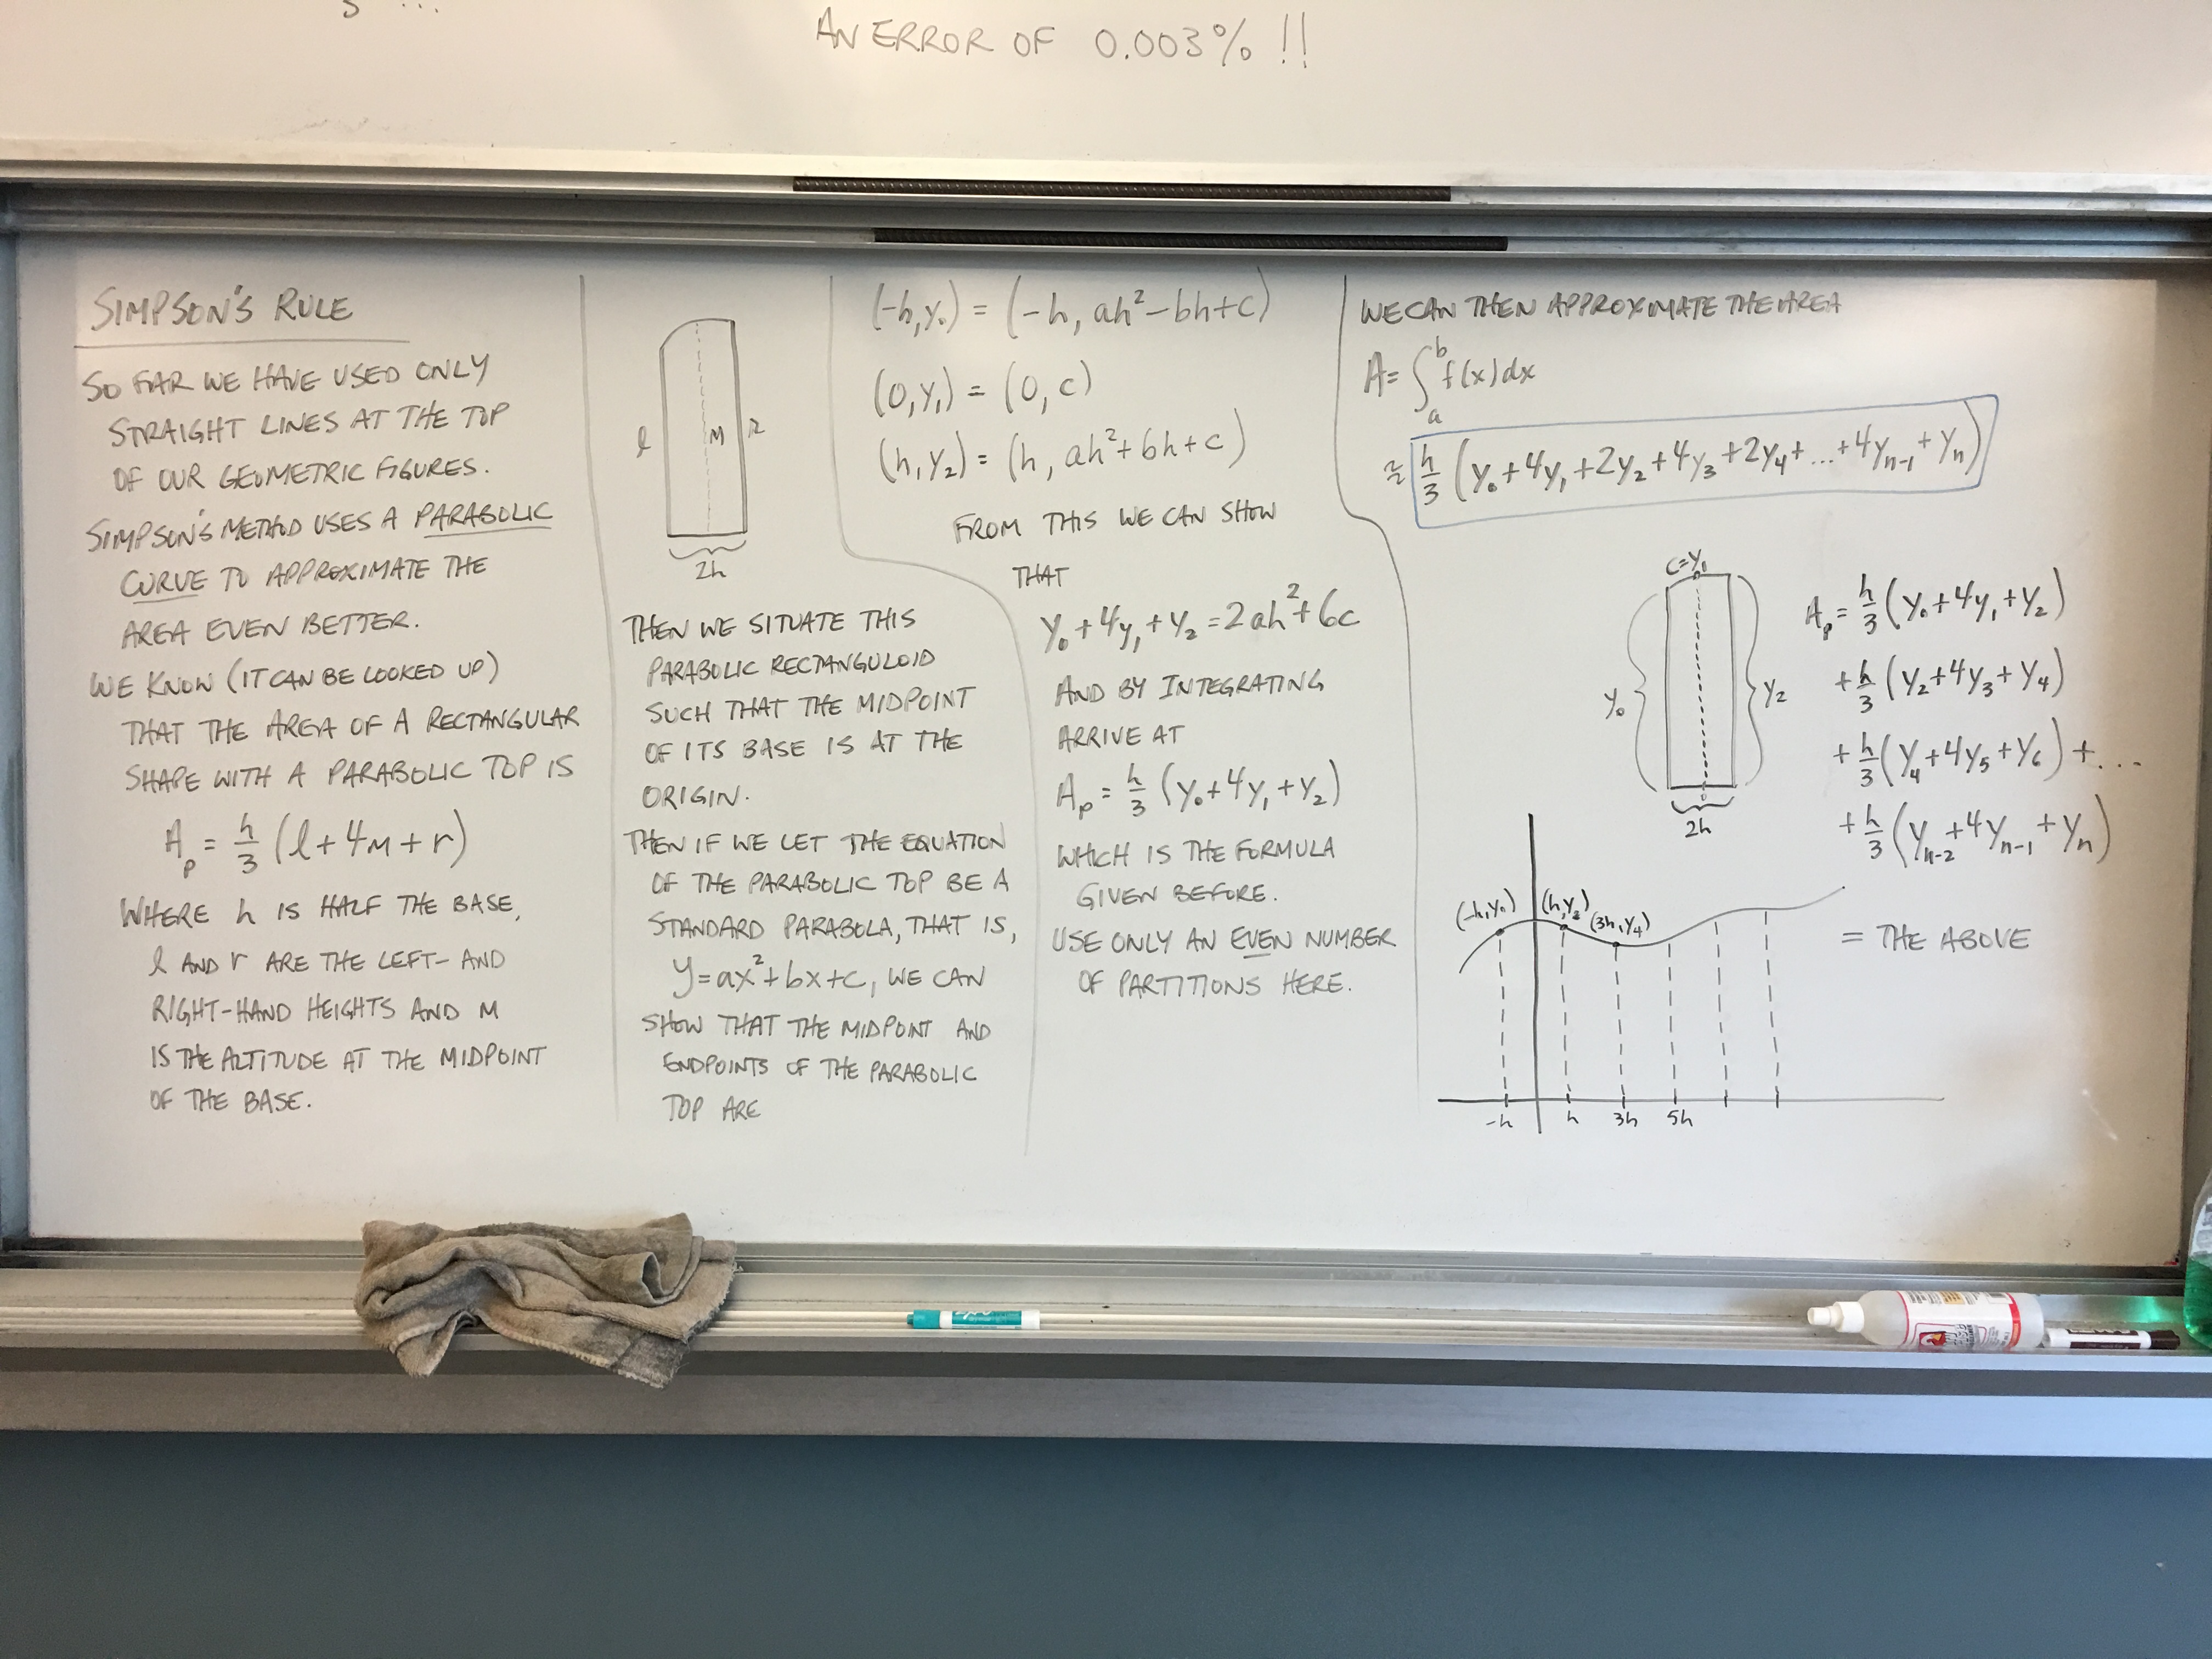 AN ERROR OF 0.003% !!
SIMPSON'S RULE
SO FAR WE HAVE USED ONLY
STRAIGHT LINES AT THE TOP
OF OUR GEOMETRIC FIGURES.
SIMPSON'S METHOD USES A PARABOLIC
CURVE TO APPROXIMATE THE
AREA EVEN BETTER.
WE KNOW (IT CAN BE LOOKED UP)
THAT THE AREA OF A RECTANGULAR
SHAPE WITH A PARABOLIC TOP IS
A_p = h/3 (l + 4M + r)
WHERE h IS HALF THE BASE,
l AND r ARE THE LEFT- AND
RIGHT-HAND HEIGHTS AND M
IS THE ALTITUDE AT THE MIDPOINT
OF THE BASE.
l M r
2h
THEN WE SITUATE THIS
PARABOLIC RECTANGULOID
SUCH THAT THE MIDPOINT
OF ITS BASE IS AT THE
ORIGIN.
THEN IF WE LET THE EQUATION
OF THE PARABOLIC TOP BE A
STANDARD PARABOLA, THAT IS,
y=ax²+bx+c, WE CAN
SHOW THAT THE MIDPOINT AND
ENDPOINTS OF THE PARABOLIC
TOP ARE
(-h, y₀) = (-h, ah²-bh+c)
(0, y₁) = (0, c)
(h, y₂) = (h, ah²+bh+c)
FROM THIS WE CAN SHOW
THAT
y₀ + 4y₁ + y₂ = 2ah² + 6c
AND BY INTEGRATING
ARRIVE AT
A_p = h/3 (y₀ + 4y₁ + y₂)
WHICH IS THE FORMULA
GIVEN BEFORE.
USE ONLY AN EVEN NUMBER
OF PARTITIONS HERE.
WE CAN THEN APPROXIMATE THE AREA
A = ∫_a^b f(x)dx
≈ h/3 (y₀ + 4y₁ + 2y₂ + 4y₃ + 2y₄ + ... + 4y_{n-1} + y_n)
c=y₁
y₀ y₂
2h
A_p = h/3 (y₀ + 4y₁ + y₂)
+ h/3 (y₂ + 4y₃ + y₄)
+ h/3 (y₄ + 4y₅ + y₆) + ...
+ h/3 (y_{n-2} + 4y_{n-1} + y_n)
= THE ABOVE
(-h, y₀) (h, y₂) (3h, y₄)
-h h 3h 5h